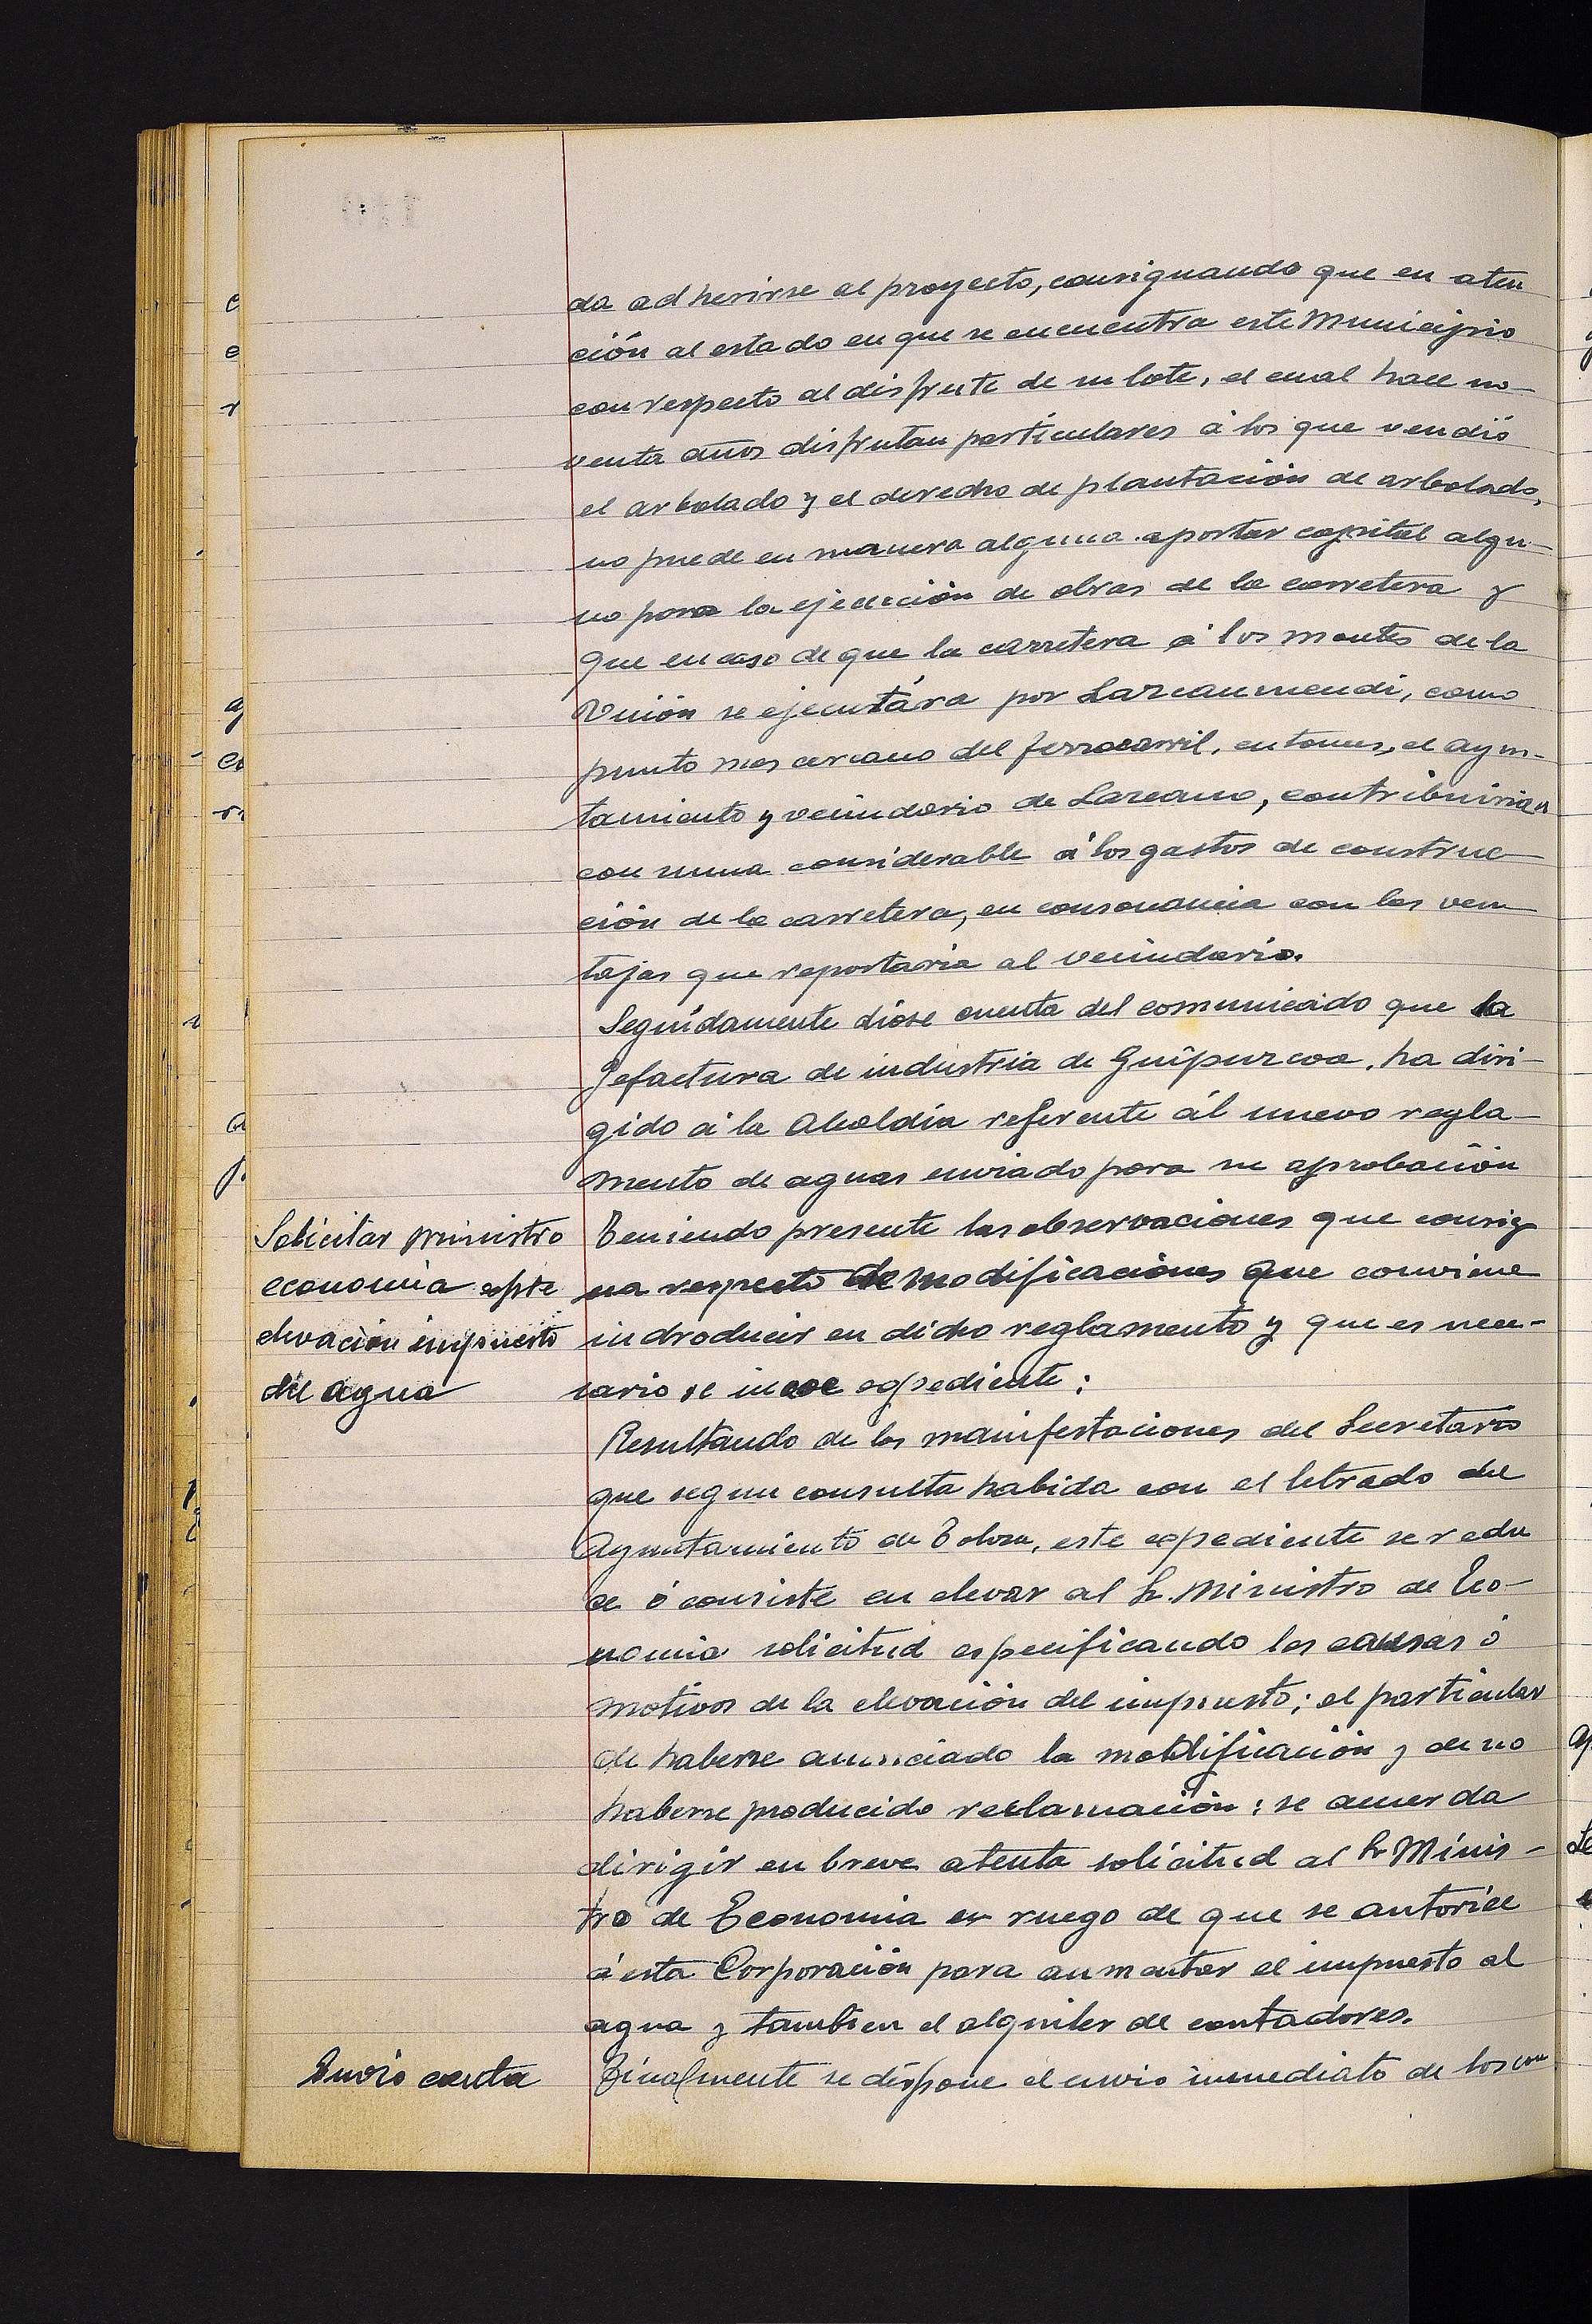 da adherirse al proyecto, consignando que en aten
ción al estado en que se encuentra este Municipio
con respecto al disfrute de su lote, el cual hace no-
venta años disfrutan particulares á los que vendió
el arbolado y el derecho de plantación de arbolado,
no puede en manera alguna aportar capital algu-
no para la ejecución de obras de la carretera y
que en caso de que la carretera á los montes de la
Unión se ejecutára por Lazcaumendi, como
punto mas cercano del ferrocarril, entonces, el ayun-
tamiento y vecindario de Lazcano, contribuirian
con suma considerable á los gastos de construc-
ción de la carretera, en consonancia con las ven
tajas que reportaria al vecindario.
Seguidamente dióse cuenta del comunicado que la
Jefactura de industria de Guipuzcoa, ha diri-
gido á la Alcaldia referente ál nuevo regla-
mento de aguas enviado para su aprobación
Solicitar ministro
economia expte
elevación impuesto
del agua
Teniendo presente las observaciones que consig
na respecto de modificaciones que conviene
indroducir en dicho reglamento y que es nece-
sario se incoe expediente:
Resultando de las manifestaciones del Secretario
que segun consulta habida con el letrado del
Ayuntamiento de Tolosa, este expediente se redu
ce ó consiste en elevar al Sr. Ministro de Eco-
nomia solicitud especificando las causas ó
motivos de la elevación del impuesto; el particular
de haberse anunciado la modificación y de no
haberse producido reclamación: se acuerda
dirigir en breve atenta solicitud al Sr Minis-
tro de Economia en ruego de que se autorice
á esta Corporación para aumentar el impuesto al
agua y tambien el alquiler de contadores.
Envio cuenta
Finalmente se dispone el envio inmediato de los con